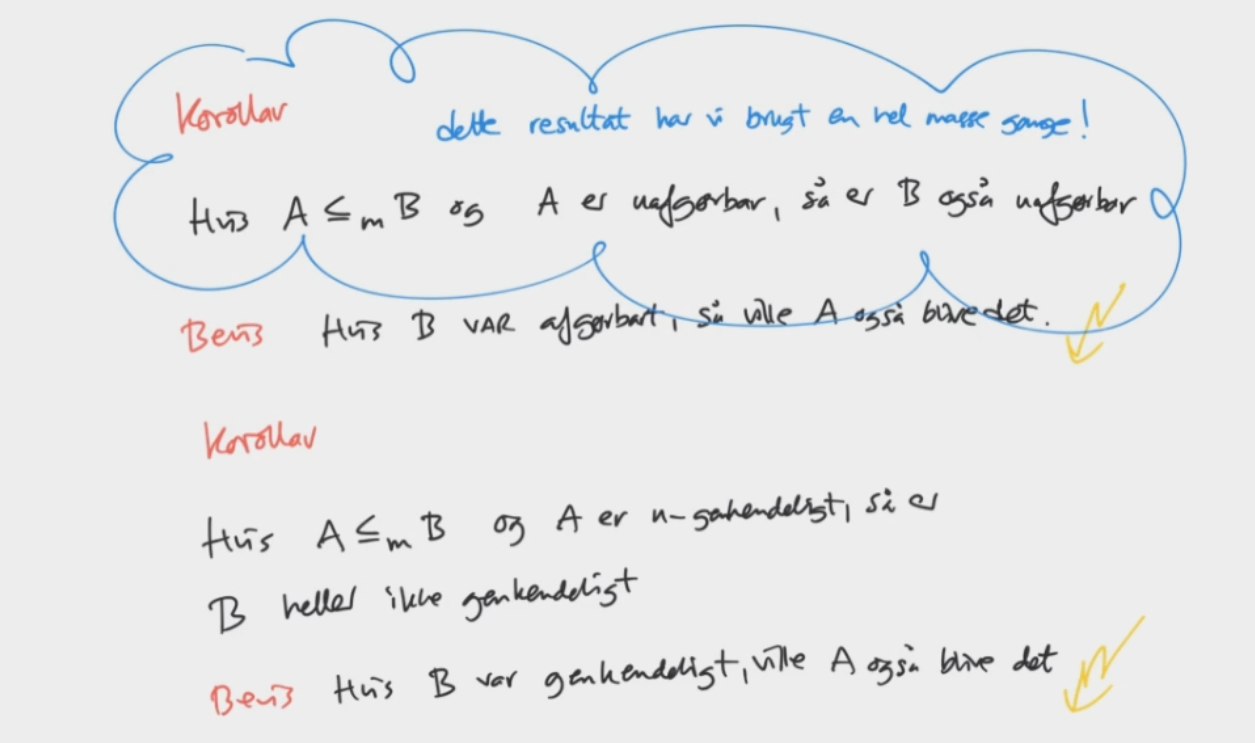 Korollar
dette resultat har vi brugt en hel masse gange!
Hvis A ≤m B og A er uafgørbar, så er B også uafgørbar
Bevis Hvis B VAR afgørbart, så ville A også blive det.
Korollar
Hvis A ≤m B og A er u-genkendeligt, så er
B heller ikke genkendeligt
Bevis Hvis B var genkendeligt, ville A også blive det